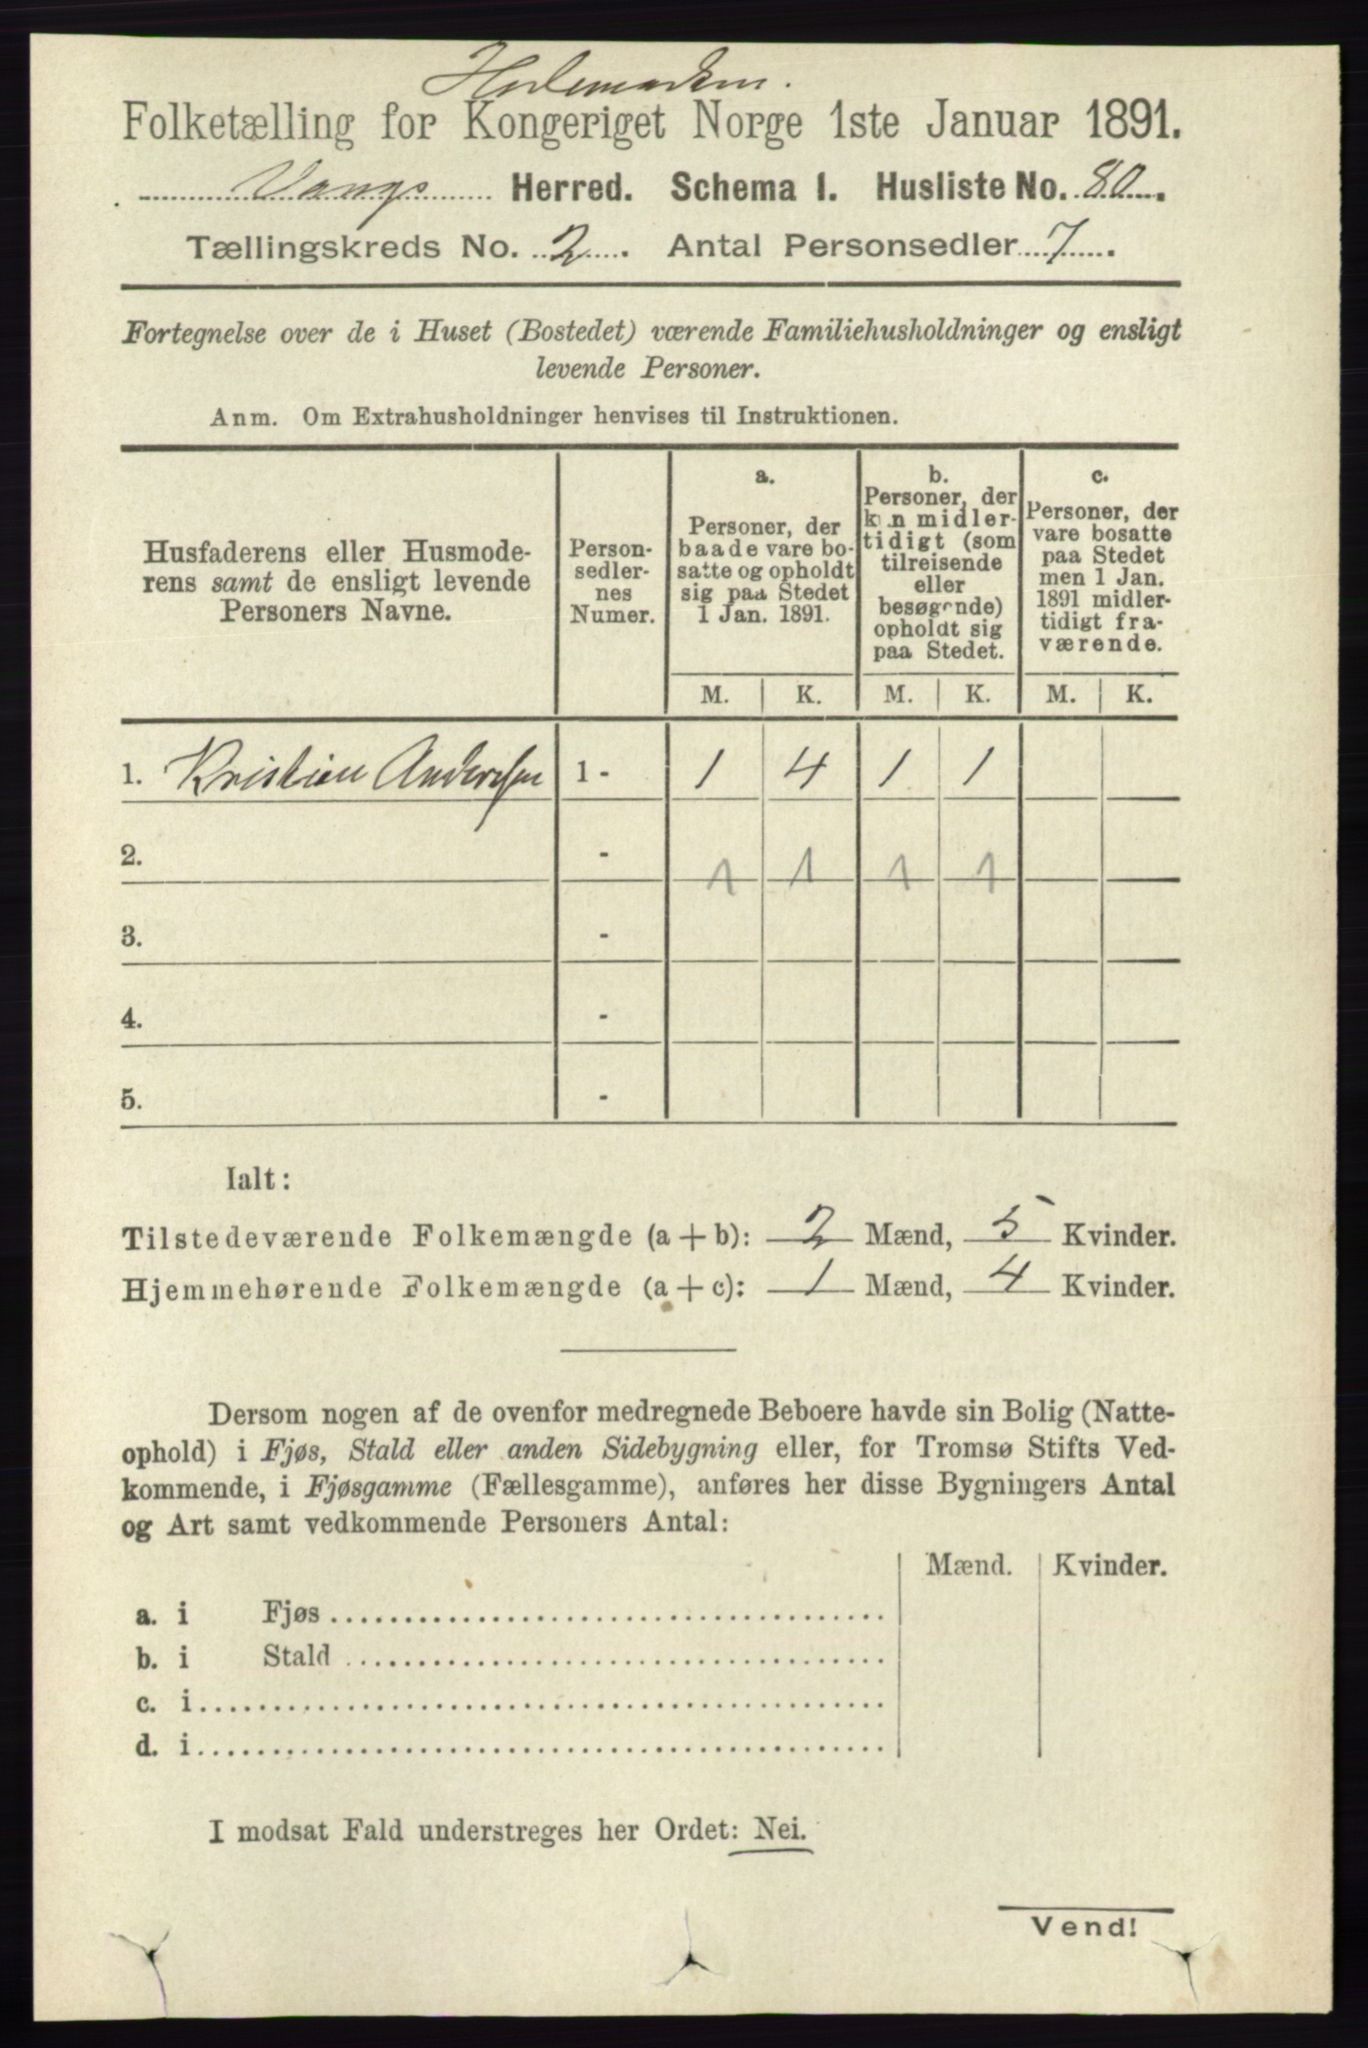 Hedemarken.
Folketælling for Kongeriget Norge 1ste Januar 1891.
Vangs Herred. Schema 1. Husliste No. 80.
Tællingskreds No. 2. Antal Personsedler 7.
Fortegnelse over de i Huset (Bostedet) værende Familiehusholdninger og ensligt
levende Personer.
Anm. Om Extrahusholdninger henvises til Instruktionen.
Husfaderens eller Husmode-
rens samt de ensligt levende
Personers Navne.
Person-
sedler-
nes
Numer.
a.
Personer, der
baade vare bo-
satte og opholdt
sig paa Stedet
1 Jan. 1891.
b.
Personer, der
kun midler-
tidigt (som
tilreisende
eller
besøgende)
opholdt sig
paa Stedet.
c.
Personer, der
vare bosatte
paa Stedet
men 1 Jan.
1891 midler-
tidigt fra-
værende.
M. K. M. K. M. K.
1. Kristian Andersen 1 - 1 4 1 1
2. - 1 1 1 1
3. -
4. -
5. -
Ialt:
Tilstedeværende Folkemængde (a + b): 2 Mænd, 5 Kvinder.
Hjemmehørende Folkemængde (a + c): 1 Mænd, 4 Kvinder.
Dersom nogen af de ovenfor medregnede Beboere havde sin Bolig (Natte-
ophold) i Fjøs, Stald eller anden Sidebygning eller, for Tromsø Stifts Ved-
kommende, i Fjøsgamme (Fællesgamme), anføres her disse Bygningers Antal
og Art samt vedkommende Personers Antal:
Mænd. Kvinder.
a. i Fjøs
b. i Stald
c. i
d. i
I modsat Fald understreges her Ordet: Nei.
Vend!